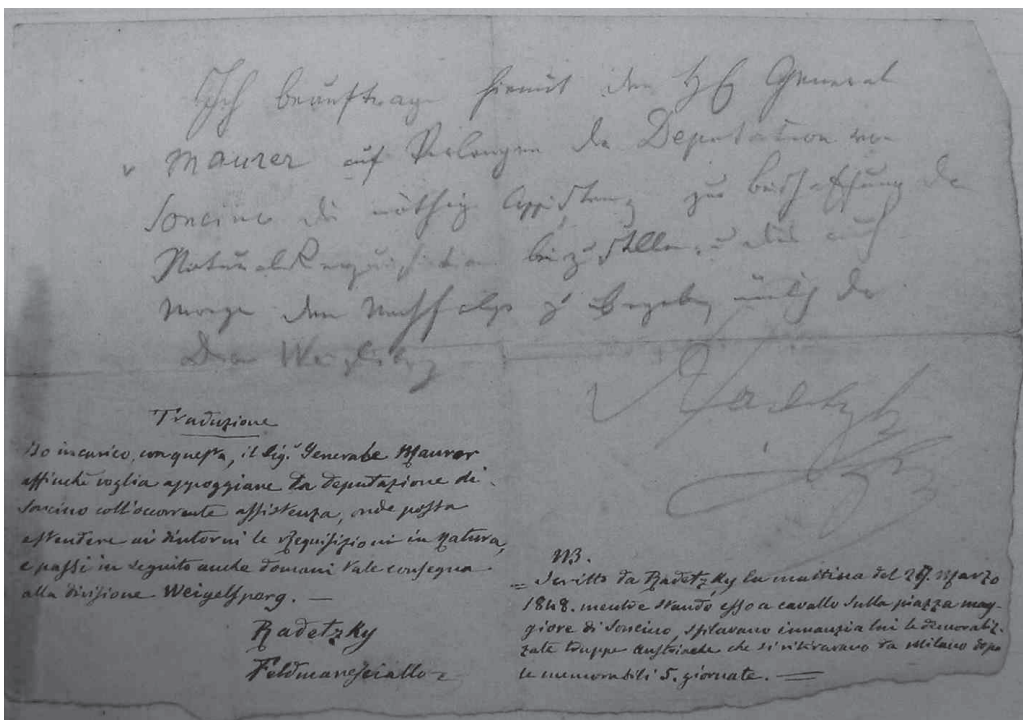 Ich beauftrage hiemit den HE General
v Maurer auf Verlangen der Deputation von
Soncino die nöthige Assistenz zur beischaffung der
Natural Requisition beizustellen, u auch
Morgen den
Div Weigelsberg
Radetzky
Traduzione
Io incarico, con questa, il Sigr. Generale Maurer
affinchè voglia appoggiare la deputazione di
Soncino coll'occorrente assistenza, onde possa
estendere ai dintorni le Requisizioni in Natura,
e passi in seguito anche domani tale consegna
alla divisione Weigelsperg. —
Radetzky
Feldmaresciallo
NB.
= Scritto da Radetzky la mattina del Marzo
1848. mentre stando esso a cavallo sulla piazza mag-
giore di Soncino, sfilavano innanzi a lui le demoraliz-
zate truppe Austriache che si ritiravano da Milano dopo
le memorabili 5. giornate. =